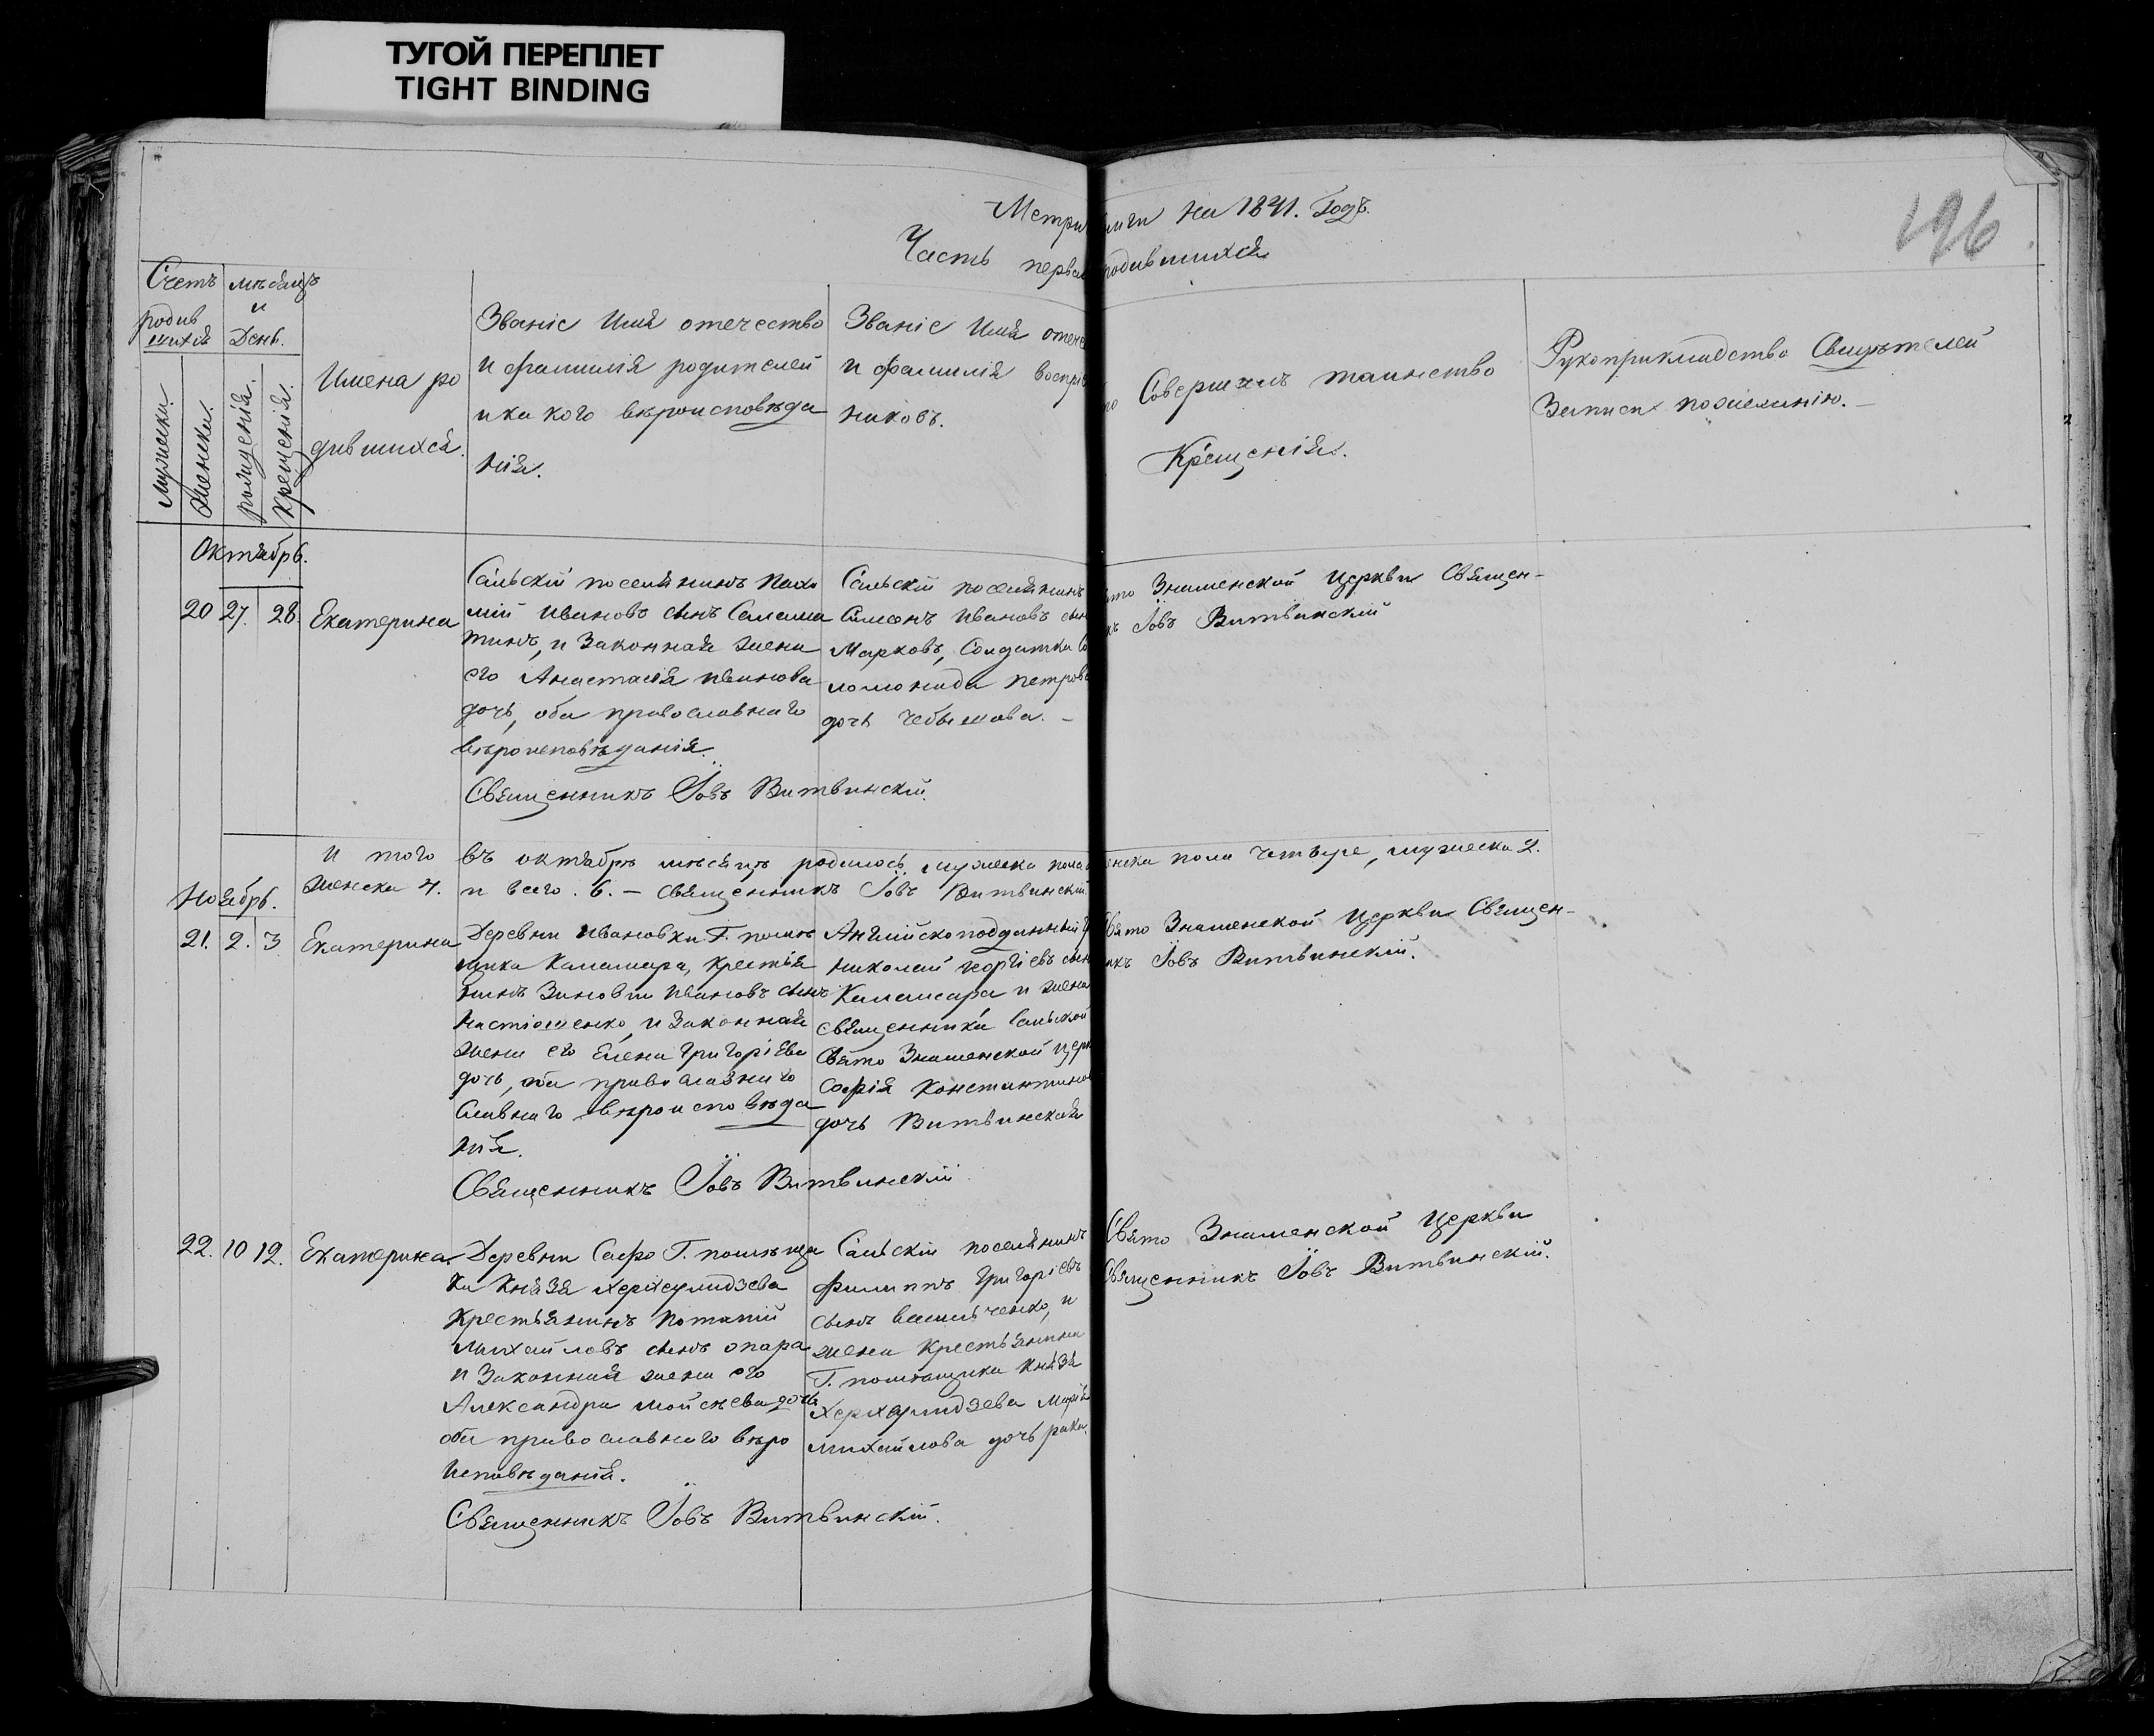 ТУГОЙ ПЕРЕПЛЕТ
TIGHT BINDING
196
Метри ниги на 1841. Годъ.
Часть первая родившихся
Счетъ
родив
шихся
мѣсяцъ
и
День.
Мужеска.
Женска.
рождения.
крещения.
Имена ро
дившихся.
Званіе Имя отечество
и фамилія родителей
и какого вѣроисповѣда
нія.
Званіе Имя отече
и фамилія воспріе
никовъ.
Совершалъ таинство
Крещенія.
Рукоприкладство Свидѣтелей
Записи по желанію.
Октябрь.
20 27. 28. Екатерина
Сальскій поселянинъ Пахо
мій Ивановъ сынъ
и Законная жена
его Анастасія Иванова
дочь, оба православнаго
вѣроисповѣданія.
Священникъ Іовъ Витвинскій.
Сальскій поселянинъ
Симеонъ Ивановъ сын
Марковъ, Солдатка Со
ломонида Петрова
дочь
ято Знаменской Церкви Священ-
къ Іовъ Витвинскій
И того въ октябрѣ мѣсяцѣ родилось мужеска пола
женска пола четыре, мужеска 2.
женска 4. и всего. 6. – Священникъ Іовъ Витвинскій.
Ноябрь.
21. 2. 3. Екатерина
Деревни Ивановки Г. помѣ
щика Каламара, крестья
нинъ Зиновій Ивановъ сынъ
Настюшенко, и Законная
жена его Елена Григоріева
дочь, оба православнаго
славнаго вѣроисповѣда
нія.
Священникъ Іовъ Витвинскій
Англійскоподданный
Николай Георгіевъ сын
Каламара и жена
священника Сальской
Свято Знаменской Церк
Софія Константинов
дочь Витвинская
Свято Знаменской Церкви Священ-
икъ Іовъ Витвинскій.
22. 10 12. Екатерина.
Деревни Сафо Г. помѣщи
ка Князя Херхеулидзева
Крестьянинъ Потапій
Михайловъ сынъ Опара
и Законная жена его
Александра Мойсеева дочь
оба православнаго вѣро
исповѣданія.
Священникъ Іовъ Витвинскій.
Сальскій поселянинъ
Филиппъ Григоріевъ
сынъ Васильченко, и
жена Крестьянина
Г. помѣщика Князя
Марія
Михайлова дочь
Свято Знаменской Церкви
Священникъ Іовъ Витвинскій.